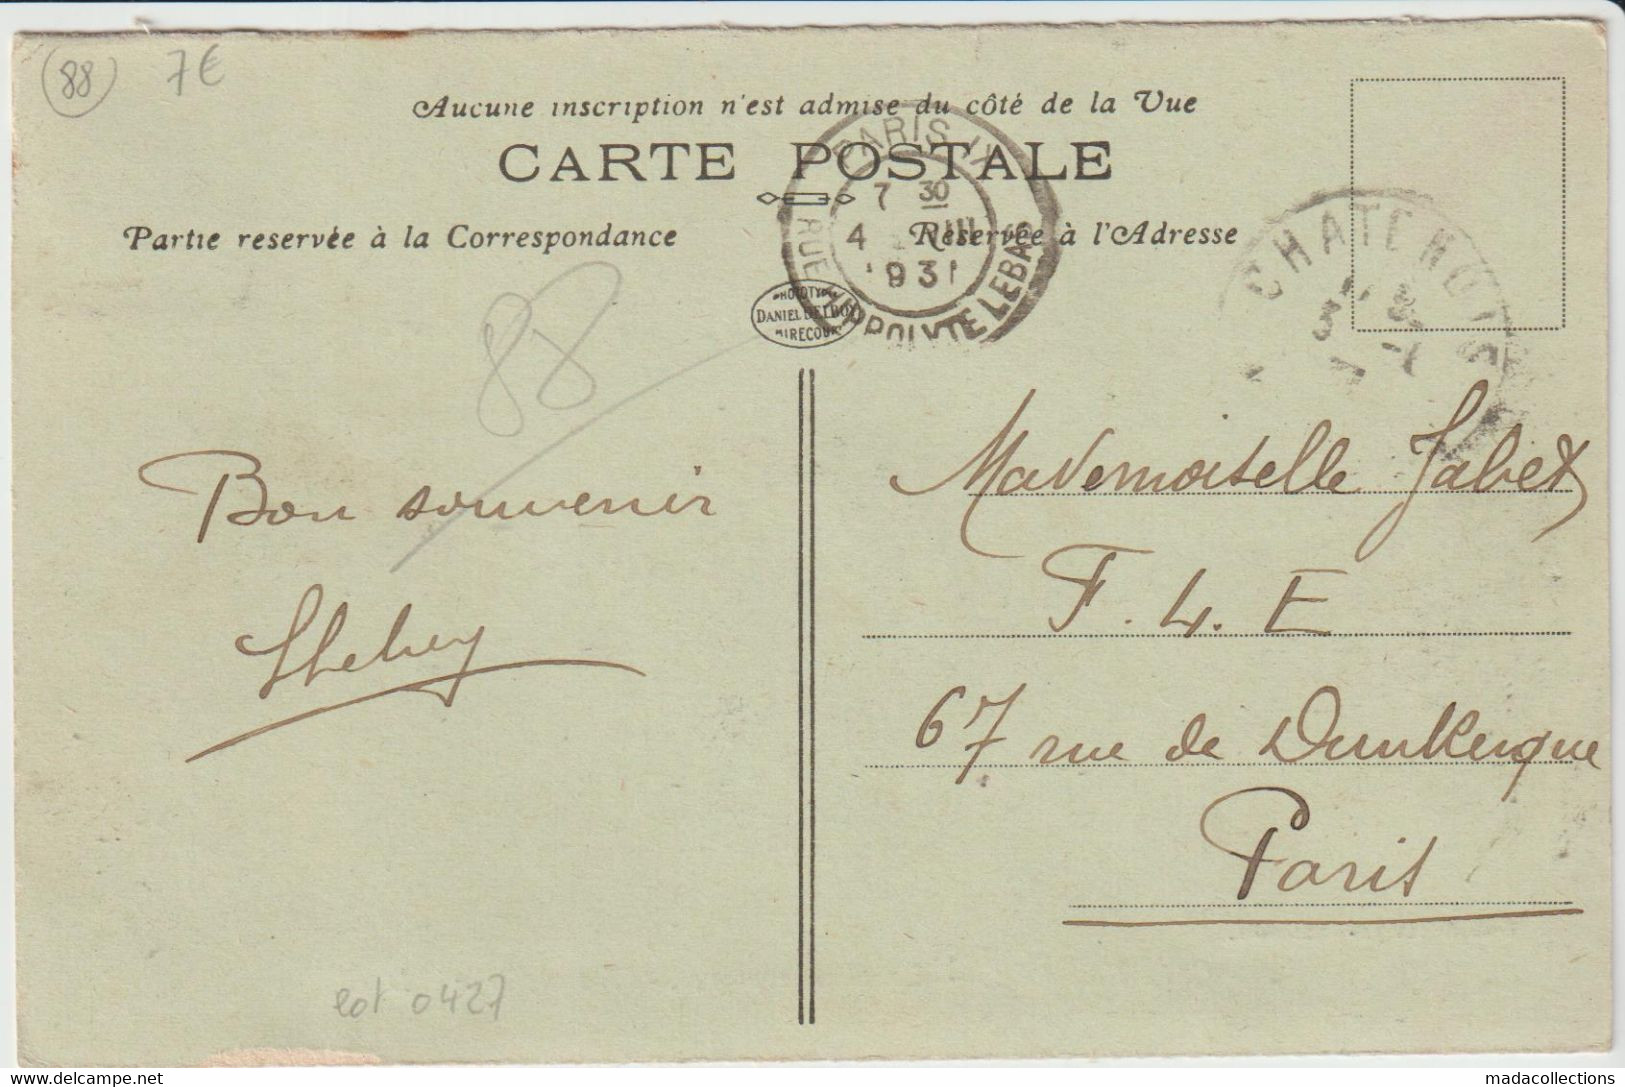 88 7€
Aucune inscription n'est admise du côté de la Vue
CARTE POSTALE
Partie reservée à la Correspondance
Réservée à l'Adresse
PARIS IX
7 30
4
931
RUE HIPPOLYTE LEBAS
CHATENOIS
PHOTOTYPIE
DANIEL DELBOY
MIRECOURT
88
Bon souvenir
Mademoiselle Jabet
F. 4. E
67 rue de Dunkerque
Paris
lot 0427
madacollections